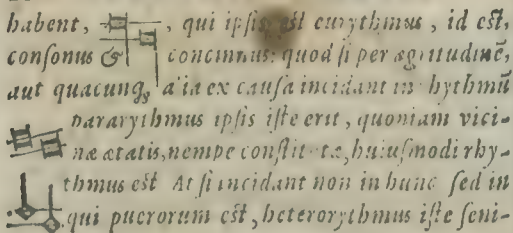 habent, , qui ipsis est eurythmus, id est,
consonus & concinnus: quod si per ægritudinē,
aut quacunq; alia ex causa incidant in hythmū
pararythmus ipsis iste erit, quoniam vici-
næ ætatis, nempe constit tæ, huiusmodi rhy-
thmus est At si incidant non in hunc sed in
qui puerorum est, heterorythmus iste seni-